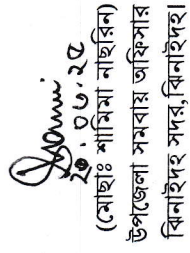 ২০.০৬.২৫
(মোছাঃ শামিমা নাছরিন)
উপজেলা সমবায় অফিসার
ঝিনাইদহ সদর, ঝিনাইদহ।